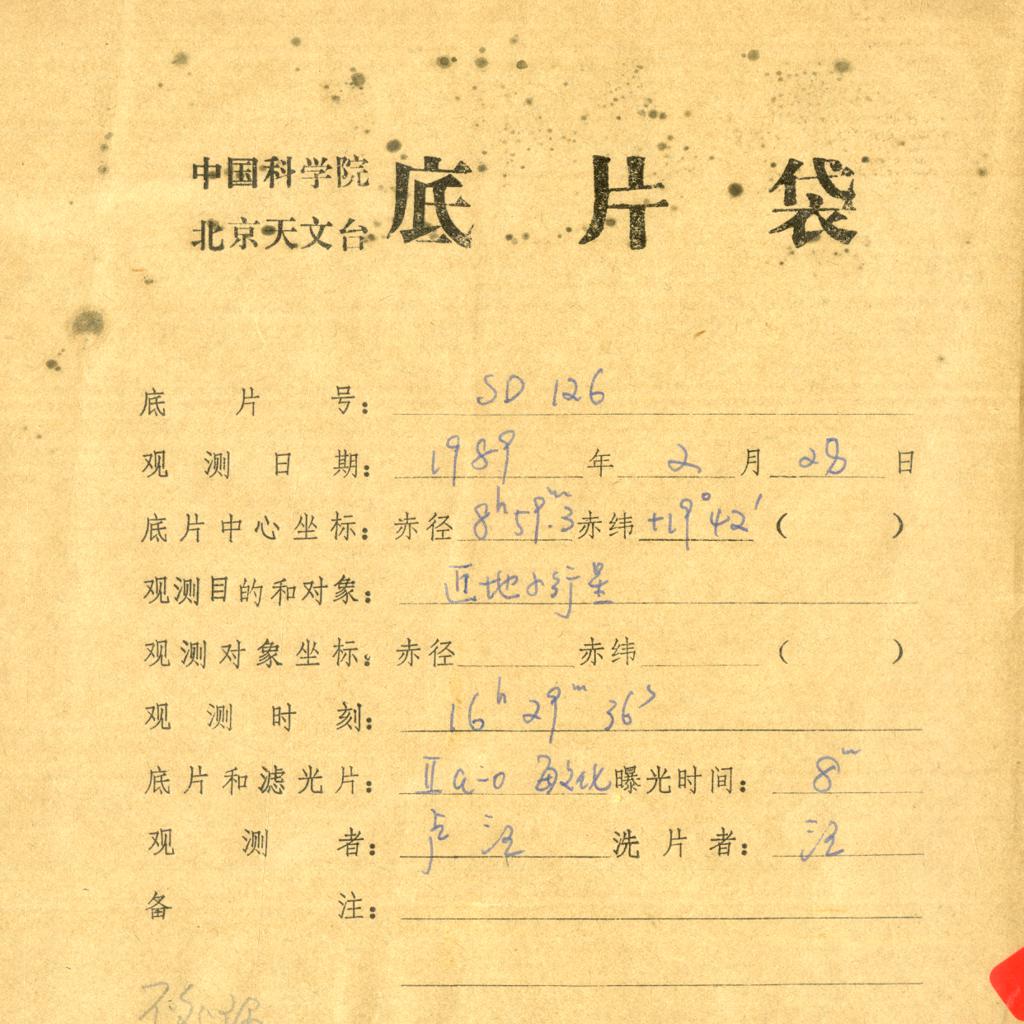 中国科学院
北京天文台
底片袋
底片号: SD 126
观测日期: 1989年2月28日
底片中心坐标: 赤径 8h59m.3 赤纬 +19°42′ ( )
观测目的和对象: 近地小行星
观测对象坐标: 赤径 赤纬 ( )
观测时刻: 16h 29m 36s
底片和滤光片: IIa-O 敏化 曝光时间: 8m
观测者: 卢 汪 洗片者: 汪
备注: